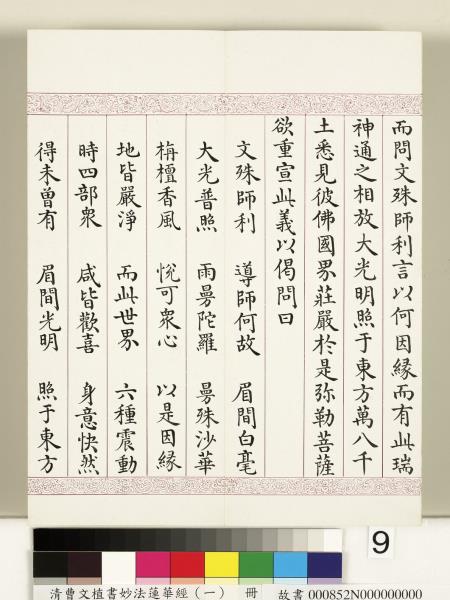 而問文殊師利言以何因緣而有此瑞
神通之相放大光明照于東方萬八千
土悉見彼佛國界莊嚴於是弥勒菩薩
欲重宣此義以偈問曰
文殊師利 導師何故 眉間白毫
大光普照 雨曼陀羅 曼殊沙華
栴檀香風 悅可衆心 以是因緣
地皆嚴淨 而此世界 六種震動
時四部衆 咸皆歡喜 身意快然
得未曽有 眉間光明 照于東方
9
清曹文植書妙法蓮華經(一) 冊 故書 000852N000000000